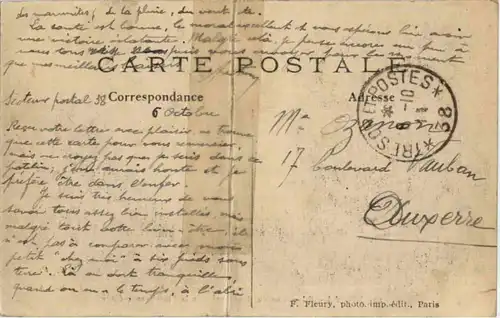 des marmites, de la pluie, du vent, etc.
La santé est bonne, le moral excellent & nous espérons bien avoir
une victoire éclatante. Malgré cela, je pense encore un peu à
vous tous
que mes meilleurs
CARTE POSTALE
Secteur postal 38
Correspondance
Adresse
6 octobre
TRESOR ET POSTES
38
Reçu votre lettre avec plaisir, ne trouve
que cette carte pour vous remercier,
mais ne croyez pas que je suis dans ce
j'en aurais honte et je
préfère être dans
Je suis très heureux de vous
savoir tous assez bien installés, mais
malgré tout votre bien-être, il
n'est pas à comparer avec mon
petit "chez moi" à six pieds sous
terre. Là on dort tranquille
quand on en a le temps, à l'abri
Me
17 boulevard Vauban
Auxerre
F. Fleury, photo. imp. édit., Paris